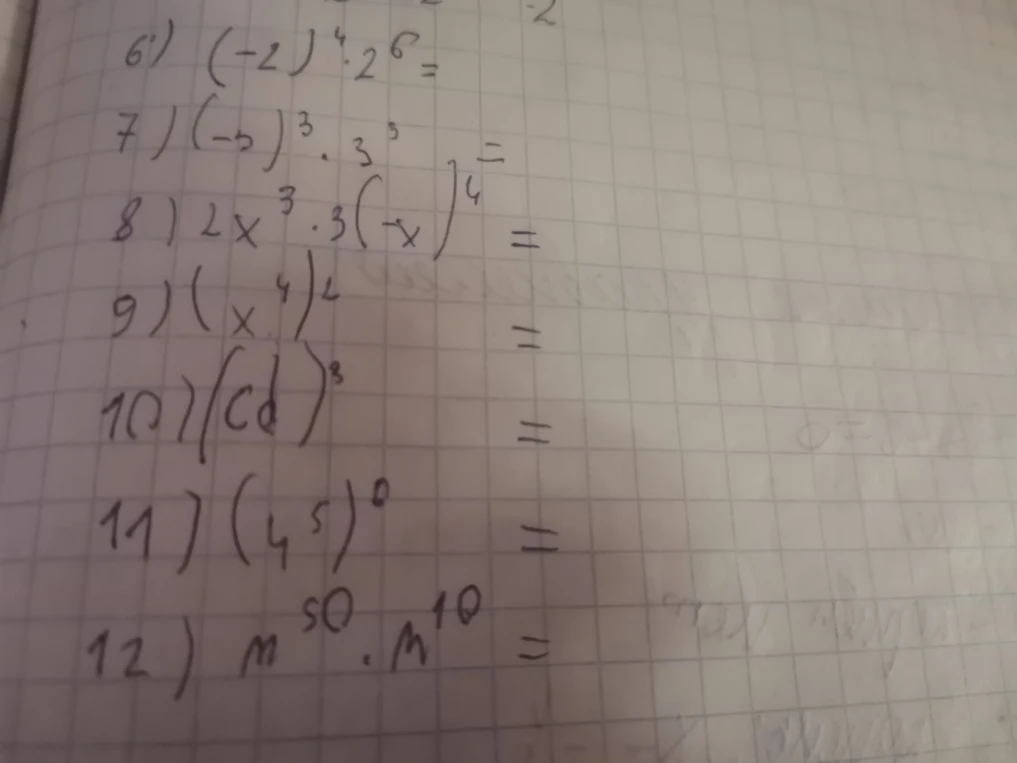 6) (-2)⁴ · 2⁶ =
7) (-5)³ · 3⁵ =
8) 2x³ · 3(-x)⁴ =
9) (x⁴)² =
10) (cd)³ =
11) (4⁵)⁰ =
12) m⁵⁰ · m¹⁰ =